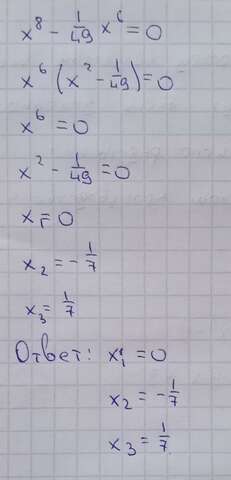 x⁸ - 1/49 x⁶ = 0
x⁶ (x² - 1/49) = 0
x⁶ = 0
x² - 1/49 = 0
x₁ = 0
x₂ = - 1/7
x₃ = 1/7
Ответ: x₁ = 0
x₂ = - 1/7
x₃ = 1/7